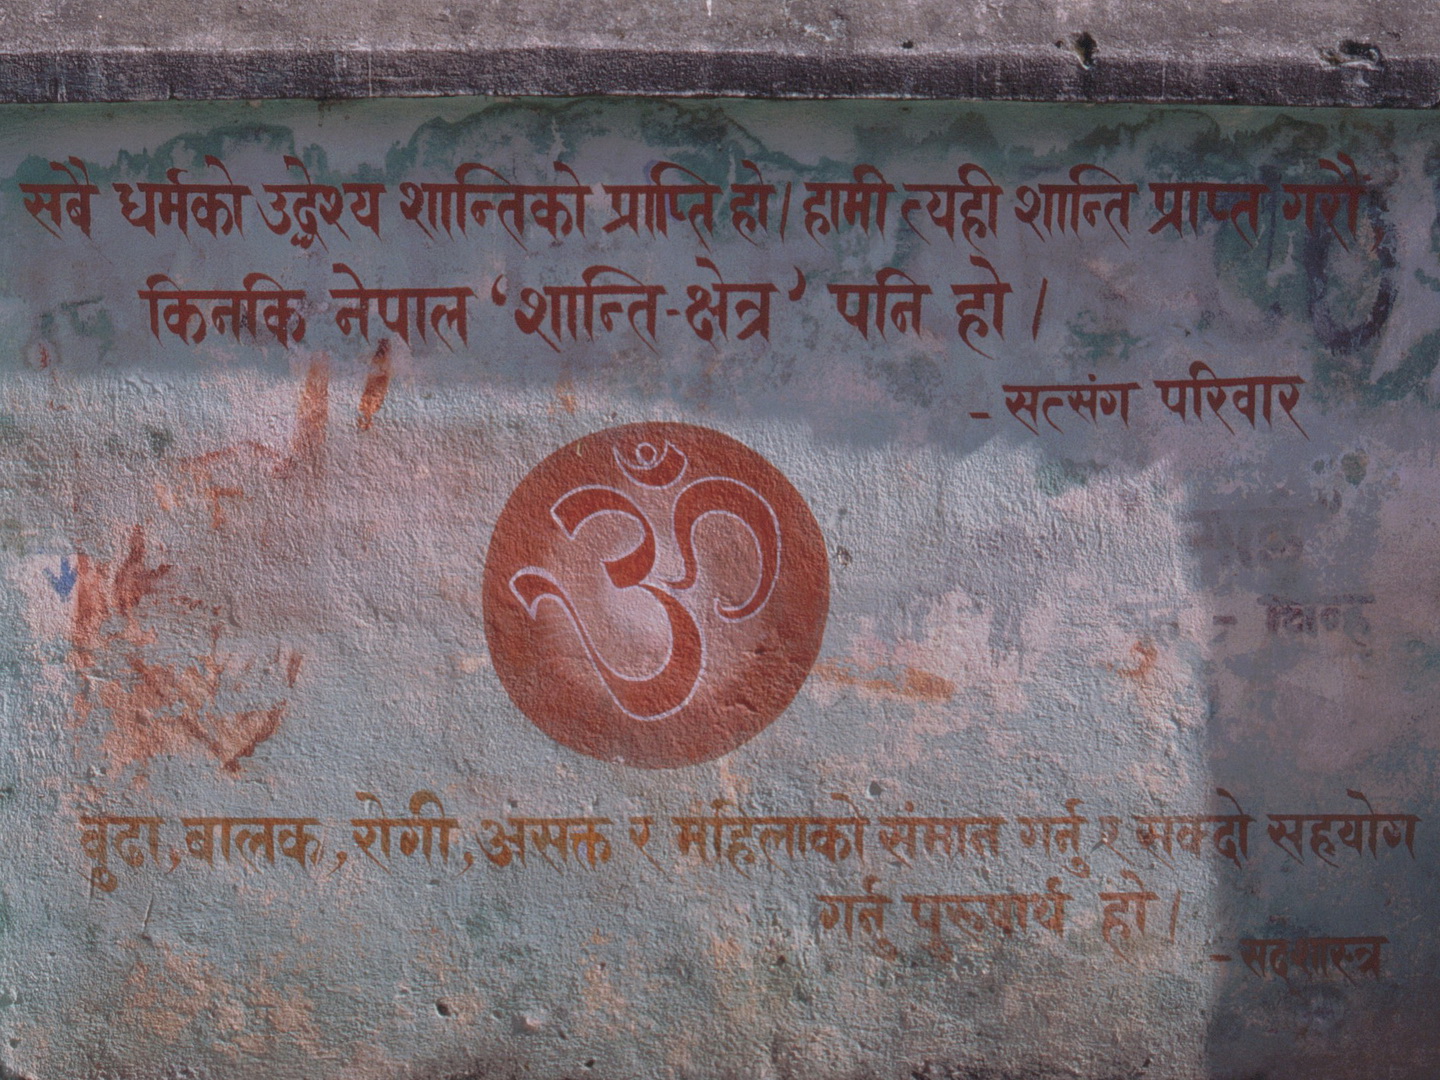 सबै धर्मको उद्देश्य शान्तिको प्राप्ति हो। हामी त्यही शान्ति प्राप्त गरौं,
किनकि नेपाल ‘शान्ति-क्षेत्र’ पनि हो।
- सत्संग परिवार
ॐ
बुढा, बालक, रोगी, असक्त र महिलाको संमान गर्नु र सक्दो सहयोग
गर्नु पुरूषार्थ हो।
- सदशास्त्र